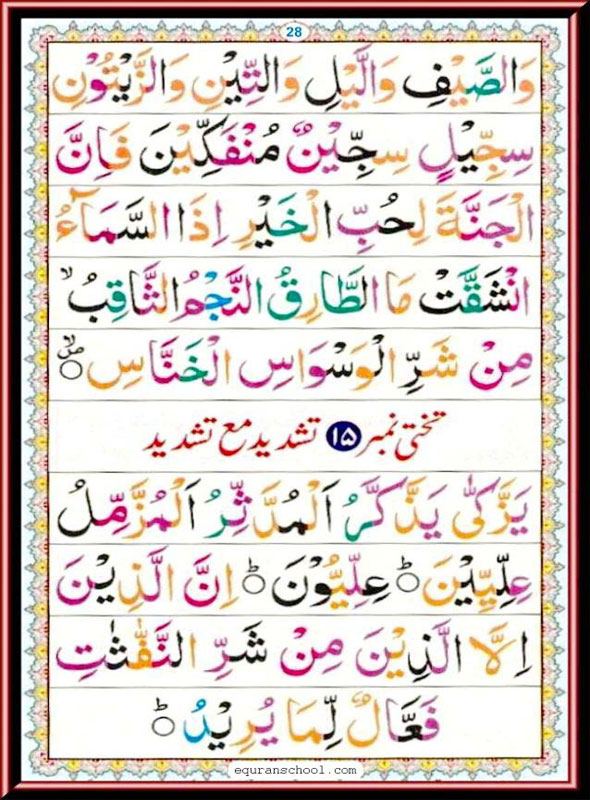 28
وَالصَّيْفِ وَالَّيْلِ وَالتِّيْنِ وَالزَّيْتُوْنِ
سِجِّيْلٍ سِجِّيْنٌ مُنْفَكِّيْنَ فَاِنَّ
الْجَنَّةَ لِحُبِّ الْخَيْرِ اِذَا السَّمَآءُ
انْشَقَّتْ مَا الطَّارِقُ النَّجْمُ الثَّاقِبُ ۙ
مِنْ شَرِّ الْوَسْوَاسِ الْخَنَّاسِ ۙ○
تختی نمبر ۱۵ تشدید مع تشدید
يَزَّكّٰى يَذَّكَّرُ اَلْمُدَّثِّرُ اَلْمُزَّمِّلُ
عِلِّيِّيْنَ ○ؕ عِلِّيُّوْنَ ○ؕ اِنَّ الَّذِيْنَ
اِلَّا الَّذِيْنَ مِنْ شَرِّ النَّفّٰثٰتِ
فَعَّالٌ لِّمَا يُرِيْدُ ○ؕ
equranschool.com